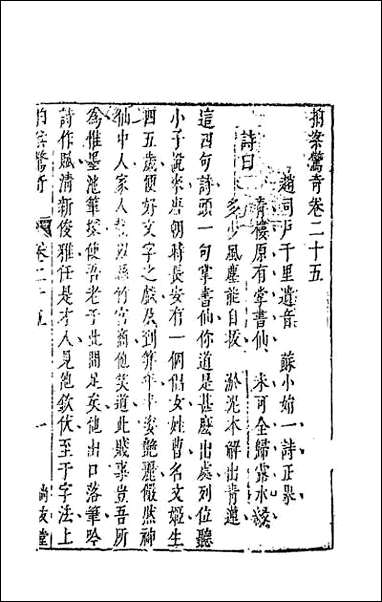 拍案驚奇卷二十五
趙司戶千里遺音 蘇小娟一詩正果
詩曰
青樓原有掌書仙 未可全歸露水緣
多少風塵能自拔 淤泥本解出青蓮
這四句詩頭一句掌書仙你道是甚麽出處列位聽
小子說來唐朝時長安有一個倡女姓曹名文姬生
四五歲便好文字之戲及到笄年丰姿艷麗儼然神
仙中人家人教以絲竹宮商他笑道此賤事豈吾所
為惟墨池筆塚使吾老于此間足矣他出口落筆吟
詩作賦清新俊雅任是才人見他欽伏至于字法上
拍案驚奇 卷二十五 一 尚友堂